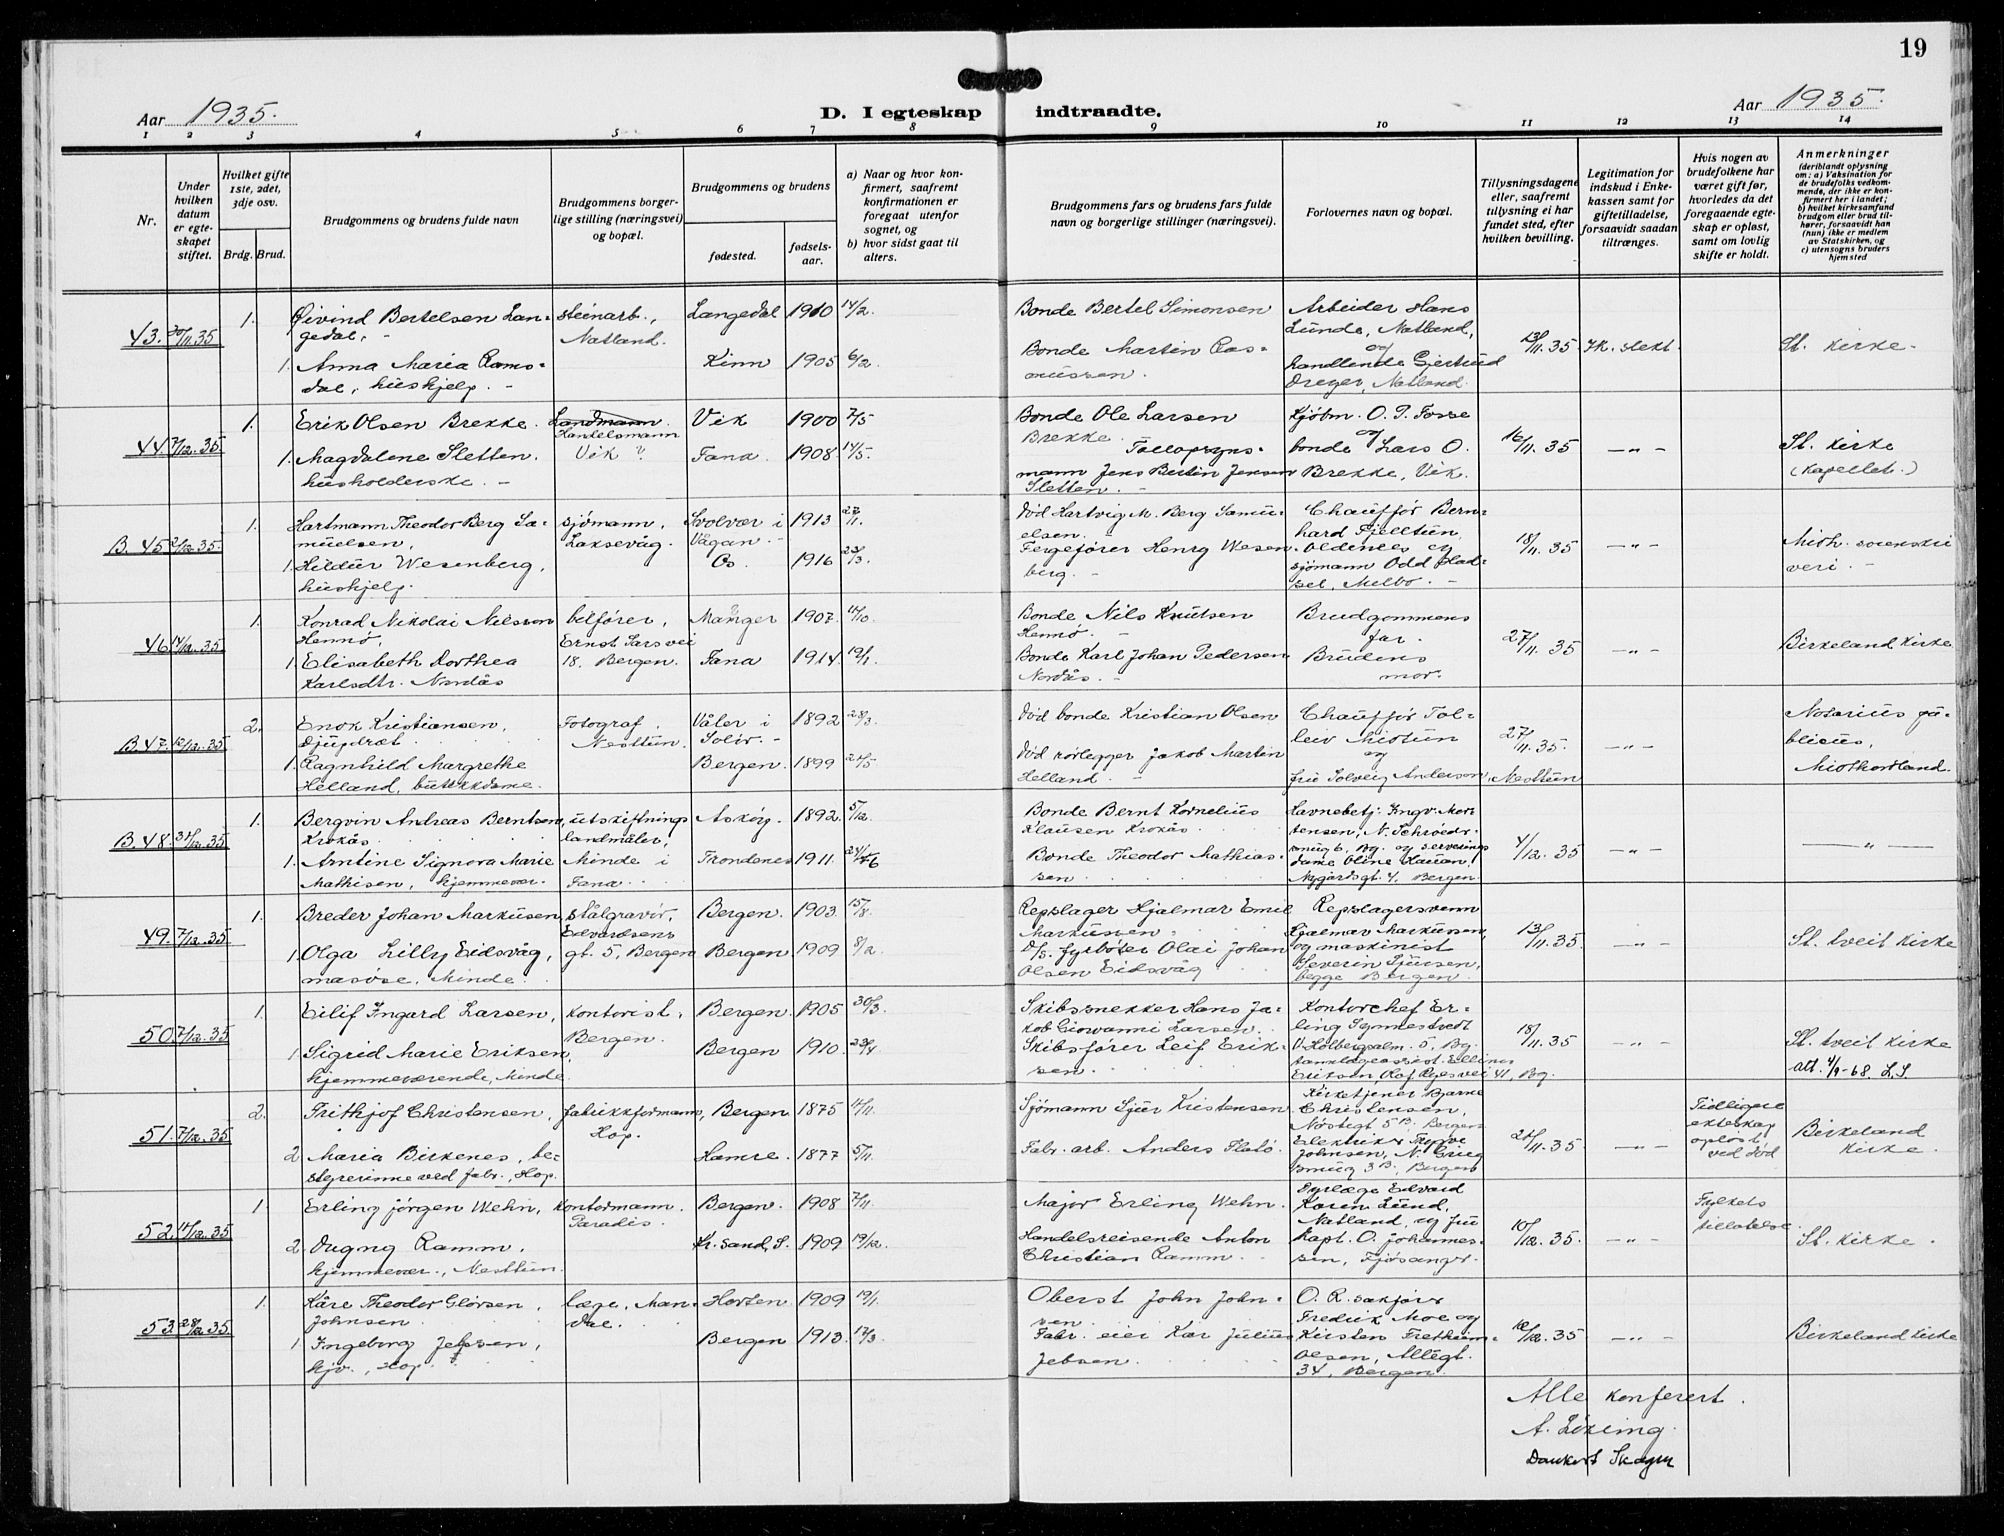 19
Aar 1935.
D. I egteskap indtraadte.
Aar 1935.
1 2 3 4 5 6 7 8 9 10 11 12 13 14
Nr.
Under hvilken datum er egteskapet stiftet.
Hvilket gifte 1ste, 2det, 3dje osv.
Brdg. Brud.
Brudgommens og brudens fulde navn
Brudgommens borgerlige stilling (næringsvei) og bopæl.
Brudgommens og brudens
fødested.
fødselsaar.
a) Naar og hvor konfirmert, saafremt konfirmationen er foregaat utenfor sognet, og
b) hvor sidst gaat til alters.
Brudgommens fars og brudens fars fulde navn og borgerlige stillinger (næringsvei).
Forlovernes navn og bopæl.
Tillysningsdagene eller, saafremt tillysning ei har fundet sted, efter hvilken bevilling.
Legitimation for indskud i Enkekassen samt for giftetilladelse, forsaavidt saadan tiltrænges.
Hvis nogen av brudefolkene har været gift før, hvorledes da det foregaaende egteskap er opløst, samt om lovlig skifte er holdt.
Anmerkninger (deriblandt oplysning om: a) Vaksination for de brudefolks vedkommende, der ikke er konfirmert her i landet; b) hvilket kirkesamfund brudgom eller brud tilhører, forsaavidt han (hun) ikke er medlem av Statskirken, og c) utensogns bruders hjemsted
43. 30/11.35 1. Øivind Bertelsen Langedal, steinarb., Natland. Langedal 1910 14/2. Bonde Bertel Simonsen
Arbeider Hans Lunde, Natland, og handlende Gjertrud Dreyer, Natland. 13/11.35 Ik. slekt. St. kirke.
1. Anna Maria Ramsdal, huskjelp. Kinn 1905 6/2. Bonde Martin Rasmussen.
44. 7/12.35 1. Erik Olsen Brekke. Landmann. Handelsmann Vik ? Vik 1900 7/5 Bonde Ole Larsen Brekke.
Kjøbm. O. P. Fosse og bonde Lars O. Brekke, Vik. 16/11.35 —„— St. kirke (kapellet.)
1. Magdalene Sletten. husholderske. Fana. 1908 14/5. Tollopsynsmann Jens Bertin Jensen Sletten.
B. 45 2/12.35. 1. Hartmann Theodor Berg Samuelsen, sjømann, Laksevåg. Svolvær i Vågan. 1913 27/11. Død Hartvig M. Berg Samuelsen.
Chauffør Bernhard Fjelltun, Oldernes og sjømann Odd Hadsel, Melbo. 18/11.35 —„— Midh. sorenskriveri.
1. Hildur Wesenberg, huskjelp. Os. 1916 23/3. Fergefører Henry Wesenberg.
46 14/12.35. 1. Konrad Nikolai Nilsson Hennø, belfører, Ernst Sarsvei 18. Bergen. Manger 1907. 14/10 Bonde Nils Knutsen Hennø.
Brudgommens far. Brudens mor. 27/11.35 —„— Birkeland kirke
1. Elisabeth Dorthea Karlsdtr. Nordås Fana 1914. 19/1. Bonde Karl Johan Pedersen Nordås.
B. 47. 12/12.35 2. Enok Kristiansen, Djupdræt. Fotograf. Nesttun. Våler i Solør. 1892 28/3. Død bonde Kristian Olsen
Chauffør Tolleiv Midtun og fru Solveig Anderson, Nesttun 27/11.35. —„— Notarius publicus, Midthordland.
1. Ragnhild Margrethe Helland, butikkdame. Bergen. 1899 24/5 Død rørlegger Jakob Martin Helland.
B. 48. 31/12.35 1. Bergvin Andreas Berntsen Krokås. utskiftningslandmåler, Minde i Fana. Askøy. 1892. 5/12. Bonde Bernt Kornelius Klausen Krokås.
Havnebetj. Ingv. Mortensen, N. Schrøedersmug 6, Bg. og serveringsdame Oline Hauan, Nygårdsgt. 4. Bergen. 4/12.35 —„— —„—
1. Amtine Signora Marie Mathisen, hjemmevær. Trondenes 1911. 24/6 Bonde Theodor Mathiassen.
49. 7/12.35 1. Breder Johan Markussen, stålgravør, Edvardsensgt. 5, Bergen Bergen. 1903. 15/8. Repslager Hjalmar Emil Markussen.
Repslagersvenn Hjalmar Markussen, og maskinist Severin Sjursen, begge Bergen. 13/11.35. —„— St. tveit kirke
1. Olga Lilly Eidsvåg, masøse, Minde. Bergen 1909 8/2. D/s. fyrbøter Olai Johan Olsen Eidsvåg
50. 7/12.35 1. Eilif Ingard Larsen, kontorist, Bergen. Bergen. 1905 30/3. Skibssnekker Hans Jakob Giowanni Larsen.
Kontorchef Erling Synnestvedt V. Holbergsalm. 5, Bg. tannlægeassist. Ellinor Eriksen, Olaf Ryesvei 41, Bg. 18/11.35 —„— St. tveit kirke att. 4/9-68. L.S.
1. Sigrid Marie Eriksen, hjemmeværende, Minde. Bergen 1910. 23/4 Skibsfører Leif Eriksen.
51. 7/12.35 2. Frithjof Christensen, fabrikkformann, Hop. Bergen 1875 11/11. Sjømann Sjur Kristensen
Kirketjener Bjarne Christensen, Nøstegt 5B. Bergen Elektriker Trygve Johnsen, N. Grieg smug 3B, Bergen 21/11.35 —„— Tidligere ekteskap opløst ved død Birkeland kirke.
2 Maria Birkenes, bestyrerinne ved fabr., Hop. Hamre. 1877 5/11. Fabr. arb. Anders Flatø.
52. 11/12.35 1. Erling Jørgen Wehn, kontormann. Paradis. Bergen. 1908 7/11. Major Erling Wehn.
Tyrlæge Edvard Karen Lund, Natland, og fru kapt. O. Johannessen, Fjøsanger. 10/12.35. —„— Fylkets tillatelse. St. kirke.
2. Dugny Ramm, hjemmevær., Nesttun. Kr. sand, S. 1909 19/12. Handelsreisende Anton Christian Ramm.
53. 28/12.35. 1. Kåre Theodor Glørsen Johnsen. læge, Mandal. Horten. 1909 19/1. Oberst John Johnsen.
O. R. sakfører Fredrik Moe og Kirsten Fretheim Olsen, Allégt. 34, Bergen. 12/12.35 —„— Birkeland kirke
1. Ingeborg Jebsen, hjv., Hop. Bergen 1913. 17/3. Fabr. eier Kar Julius Jebsen.
Alle konferert.
A. Løkeing.
Dankert Skagen